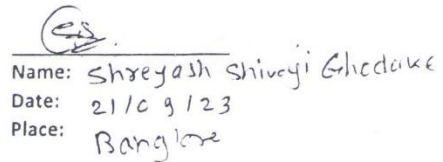 Name: Shreyash Shivaji Ghodake
Date: 21/09/23
Place: Banglore